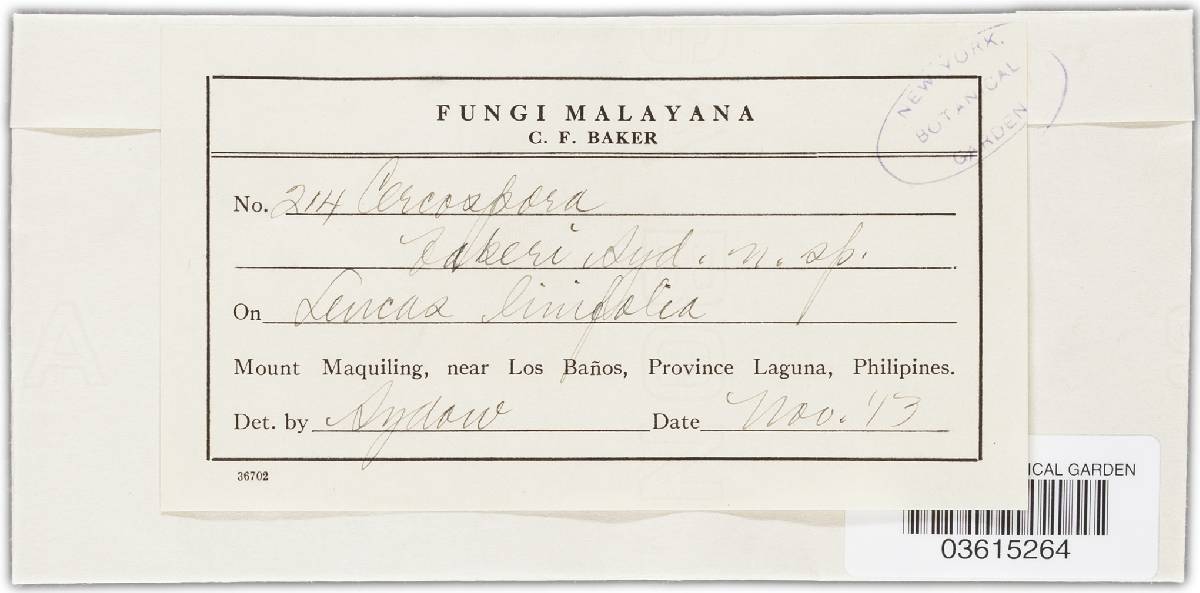 FUNGI MALAYANA
C. F. BAKER
No. 214 Cercospora
bakeri Syd. n. sp.
On Leucas linifolia
Mount Maquiling, near Los Baños, Province Laguna, Philipines.
Det. by Sydow Date Nov. '13
36702
NEW YORK
BOTANICAL
GARDEN
ICAL GARDEN
03615264